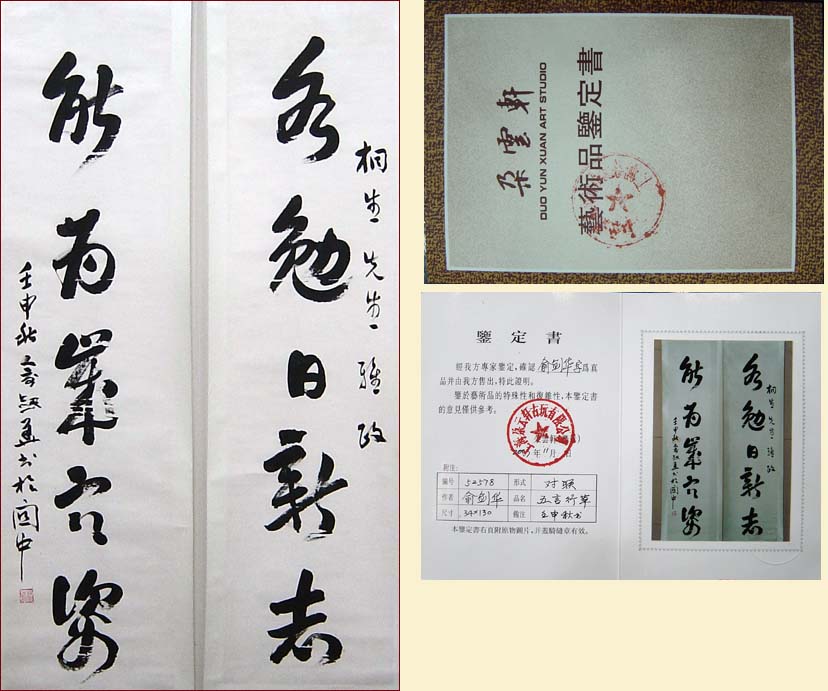 各勉日新志
桐生先生雅政
能为歲寒姿
壬申秋
書於國中
朵雲軒
DUO YUN XUAN ART STUDIO
藝術品鑒定書
鑒定書
經我方專家鑒定,確認俞剑华字爲真
品并由我方售出,特此證明。
鑒於藝術品的特殊性和復雜性,本鑒定書
的意見僅供參考。
年11月 日
附注:
編號 52578 形式 对联
作者 俞剑华 品名 五言行草
尺寸 34×130 備注 壬申秋书
本鑒定書右頁附原物圖片,并蓋騎縫章有效。
各勉日新志
桐生先生雅政
能为歲寒姿